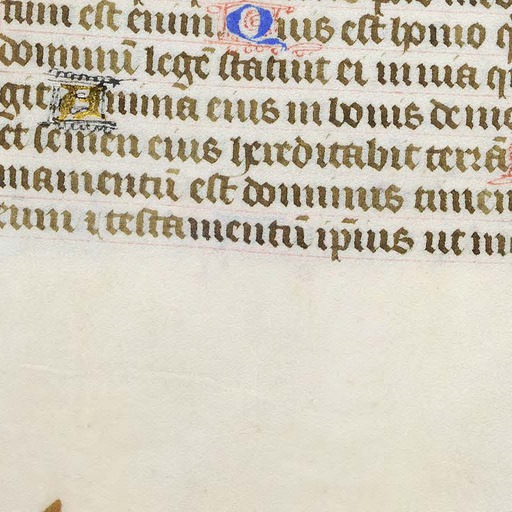 tum est enim Quis est homo q
dominū legē statuit ei in uia q
git Anima eius in bonis demo
et semen eius hereditabit terrā
mamentū est dominus timen
eum ⁊ testamentū ip̄ius ut m